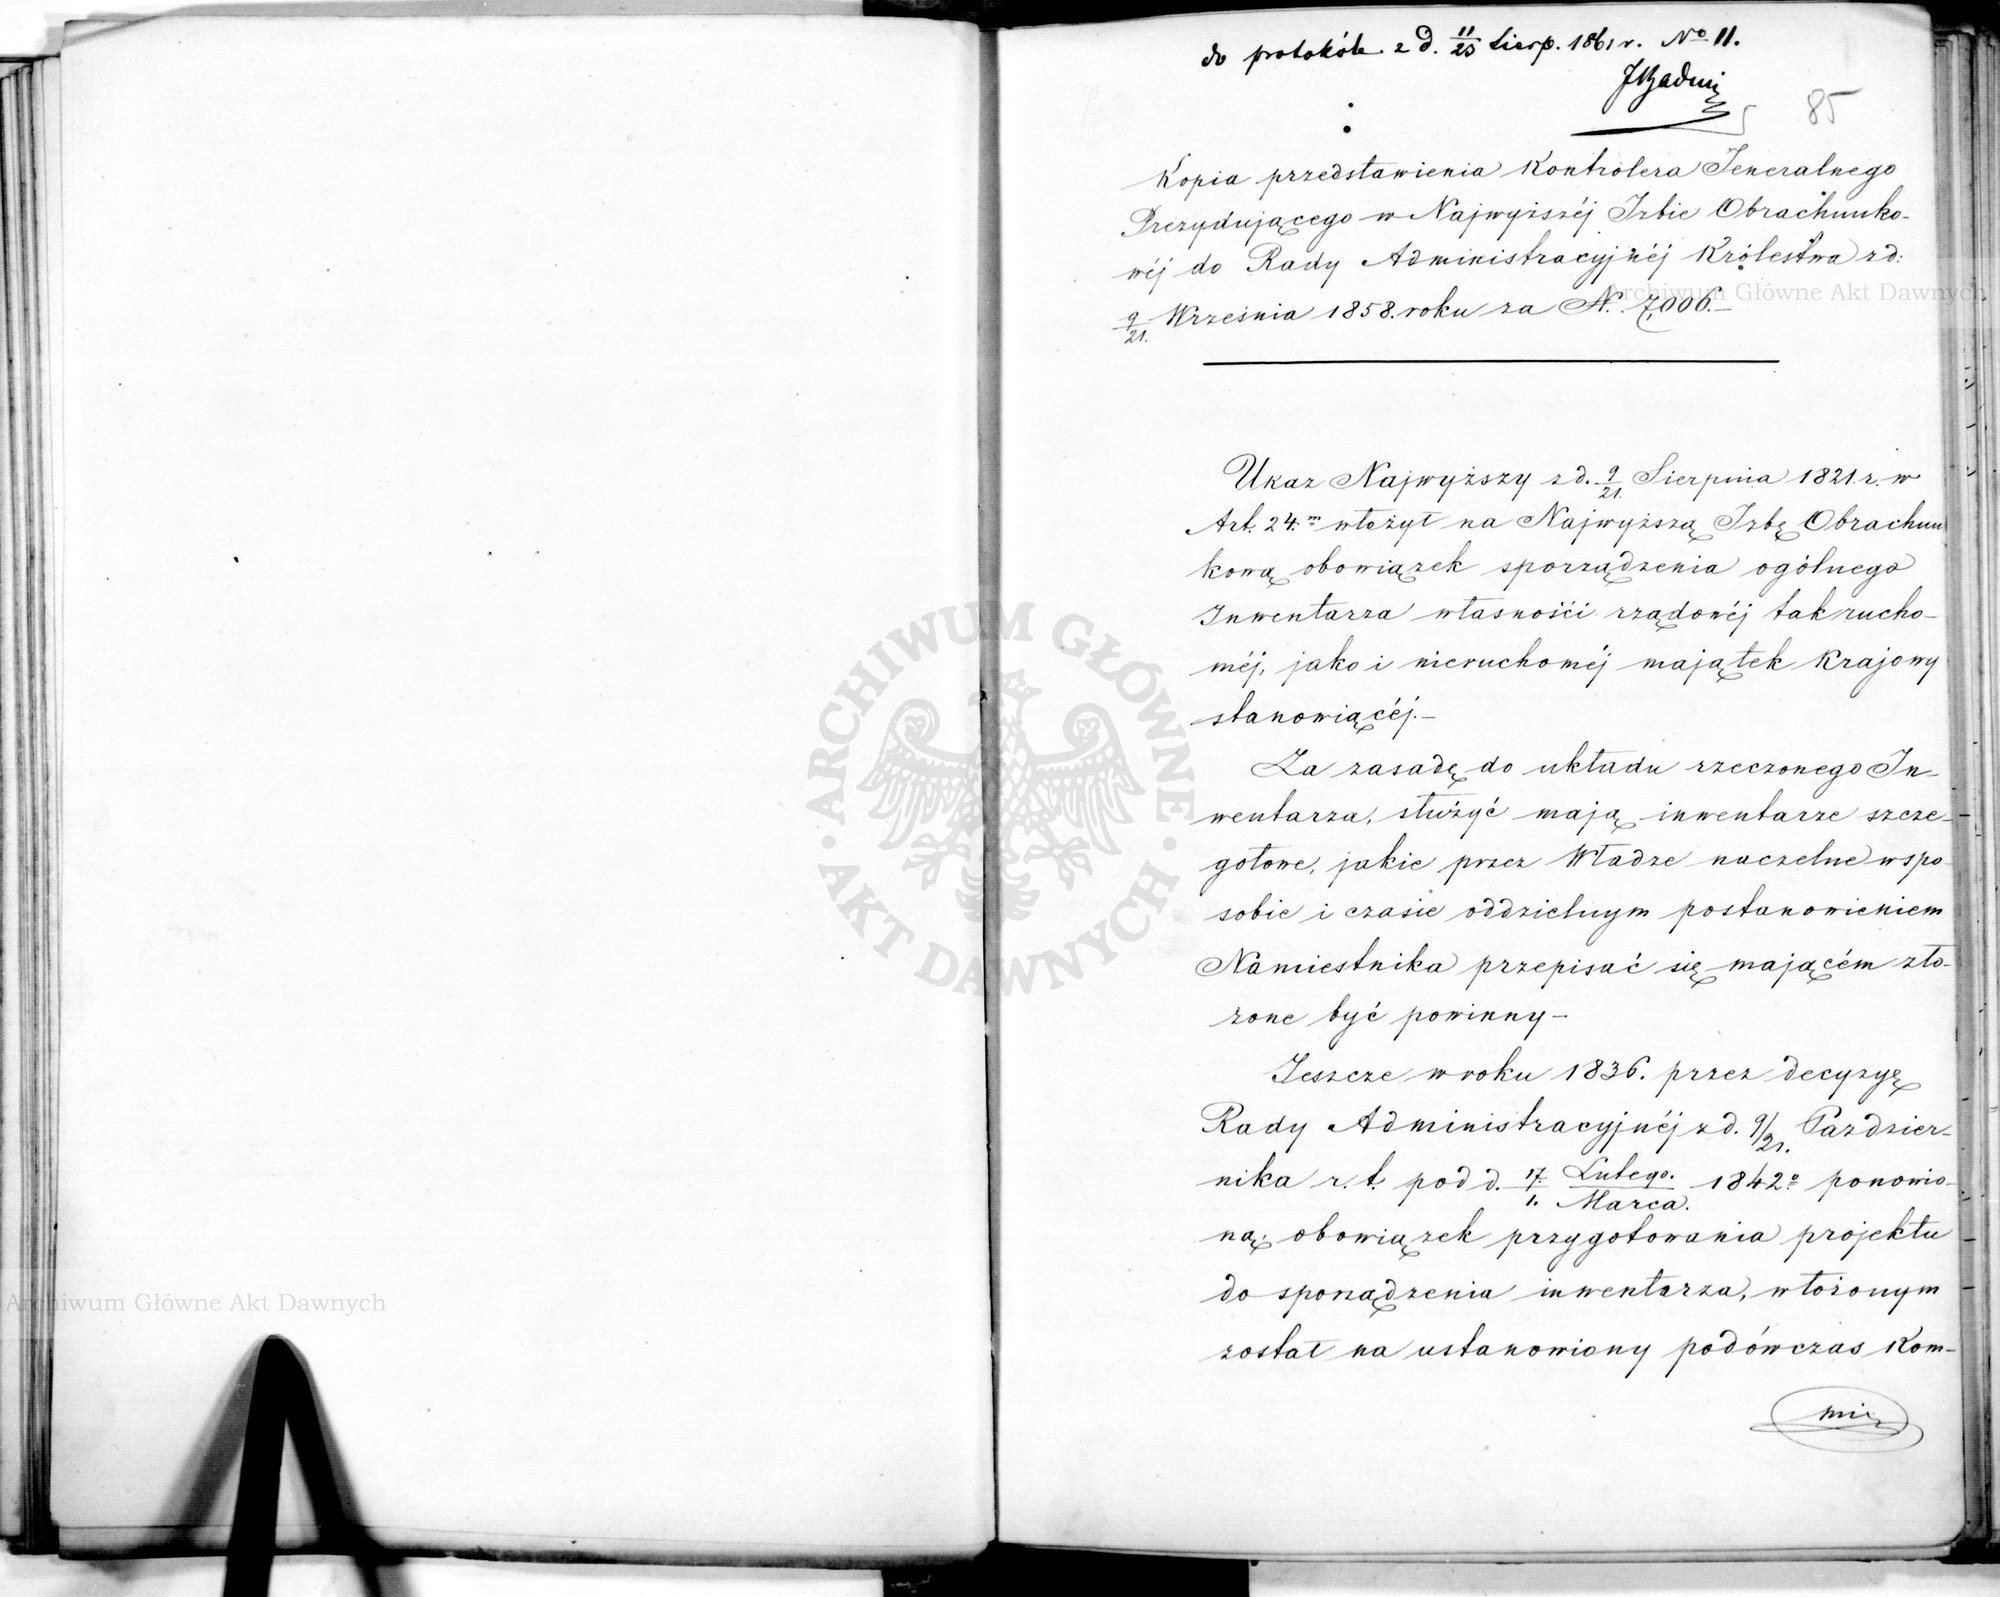 do protokółu z d. 11/23 Sierp. 1861 r. No 11.
85
Kopia przedstawienia Kontrolera Jeneralnego
Prezydującego w Najwyższéj Izbie Obrachunko-
wéj do Rady Administracyjnéj Królestwa z d:
9/21. Września 1858. roku za N. 7,006.—
Ukaz Najwyższy z d. 9/21. Sierpnia 1821. r. w
Art. 24.m włożył na Najwyższą Izbę Obrachun
kową obowiązek sporządzenia ogólnego
Inwentarza własności rządowéj tak rucho-
méj, jako i nieruchoméj majątek Krajowy
stanowiącéj.—
Za zasadę do układu rzeczonego In-
wentarza, służyć mają inwentarze szcze-
gółowe, jakie przez Władze naczelne w spo-
sobie i czasie oddzielnym postanowieniem
Namiestnika przepisać się mającém zło-
żone być powinny—
Jeszcze w roku 1836. przez decyzyę
Rady Administracyjnéj z d. 9/21. Pazdzier-
nika r. t. pod d. 17/1. Lutego./Marca. 1842o ponowio-
ną; obowiązek przygotowania projektu
do sporządzenia inwentarza, włożonym
został na ustanowiony podówczas Kom-
mi
Archiwum Główne Akt Dawnych
ARCHIWUM GŁÓWNE · AKT DAWNYCH ·
Archiwum Główne Akt Dawnych